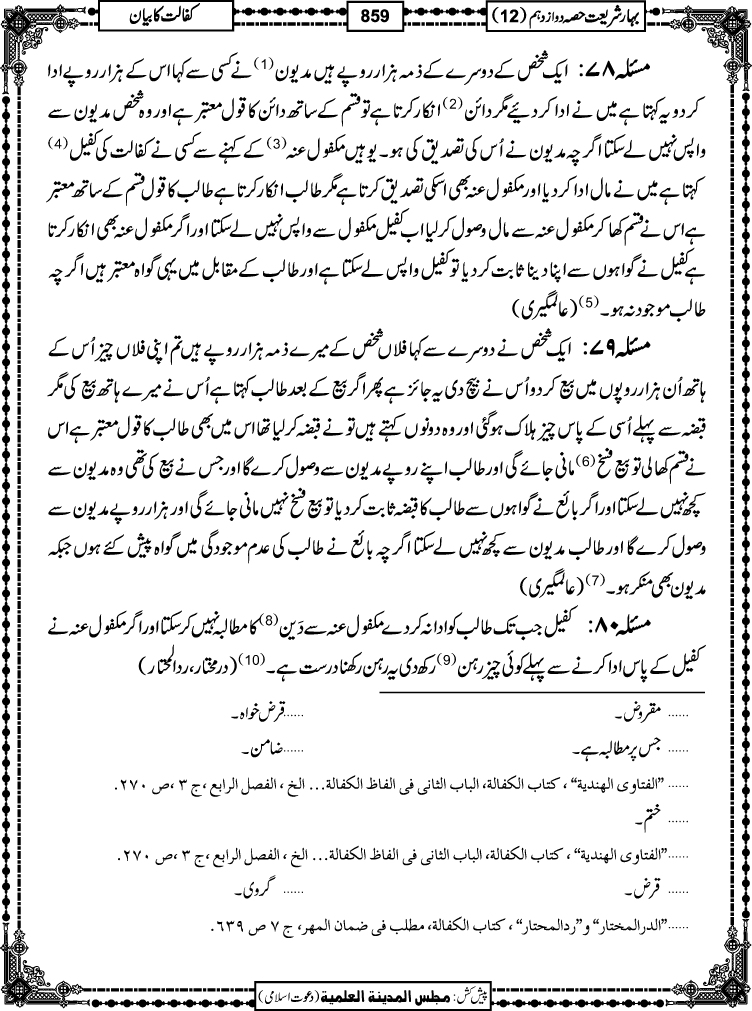 بہار شریعت حصہ دوازدہم (12)
859
کفالت کا بیان
مسئلہ ۷۸: ایک شخص کے دوسرے کے ذمہ ہزار روپے ہیں مدیون (1) نے کسی سے کہا اس کے ہزار روپے ادا
کر دو یہ کہتا ہے میں نے ادا کر دیے مگر دائن (2) انکار کرتا ہے تو قسم کے ساتھ دائن کا قول معتبر ہے اور وہ شخص مدیون سے
واپس نہیں لے سکتا اگرچہ مدیون نے اُس کی تصدیق کی ہو۔ یوہیں مکفول عنہ (3) کے کہنے سے کسی نے کفالت کی کفیل (4)
کہتا ہے میں نے مال ادا کر دیا اور مکفول عنہ بھی اسکی تصدیق کرتا ہے مگر طالب انکار کرتا ہے طالب کا قول قسم کے ساتھ معتبر
ہے اس نے قسم کھا کر مکفول عنہ سے مال وصول کر لیا اب کفیل مکفول سے واپس نہیں لے سکتا اور اگر مکفول عنہ بھی انکار کرتا
ہے کفیل نے گواہوں سے اپنا دینا ثابت کر دیا تو کفیل واپس لے سکتا ہے اور طالب کے مقابل میں یہی گواہ معتبر ہیں اگرچہ
طالب موجود نہ ہو۔ (5) (عالمگیری)
مسئلہ ۷۹: ایک شخص نے دوسرے سے کہا فلاں شخص کے میرے ذمہ ہزار روپے ہیں تم اپنی فلاں چیز اُس کے
ہاتھ اُن ہزار روپوں میں بیع کر دو اُس نے بیچ دی یہ جائز ہے پھر اگر بیع کے بعد طالب کہتا ہے اُس نے میرے ہاتھ بیع کی مگر
قبضہ سے پہلے اُسی کے پاس چیز ہلاک ہوگئی اور وہ دونوں کہتے ہیں تو نے قبضہ کر لیا تھا اس میں بھی طالب کا قول معتبر ہے اس
نے قسم کھا لی تو بیع فسخ (6) مانی جائے گی اور طالب اپنے روپے مدیون سے وصول کرے گا اور جس نے بیع کی تھی وہ مدیون سے
کچھ نہیں لے سکتا اور اگر بائع نے گواہوں سے طالب کا قبضہ ثابت کر دیا تو بیع فسخ نہیں مانی جائے گی اور ہزار روپے مدیون سے
وصول کرے گا اور طالب مدیون سے کچھ نہیں لے سکتا اگرچہ بائع نے طالب کی عدم موجودگی میں گواہ پیش کئے ہوں جبکہ
مدیون بھی منکر ہو۔ (7) (عالمگیری)
مسئلہ ۸۰: کفیل جب تک طالب کو ادا نہ کر دے مکفول عنہ سے دَین (8) کا مطالبہ نہیں کر سکتا اور اگر مکفول عنہ نے
کفیل کے پاس ادا کرنے سے پہلے کوئی چیز رہن (9) رکھ دی یہ رہن رکھنا درست ہے۔ (10) (درمختار، ردالمحتار)
......مقروض۔ ......قرض خواہ۔
......جس پر مطالبہ ہے۔ ......ضامن۔
......"الفتاوى الهندية"، كتاب الكفالة، الباب الثانى فى الفاظ الكفالة... الخ، الفصل الرابع، ج ۳، ص ۲۷۰.
......ختم۔
......"الفتاوى الهندية"، كتاب الكفالة، الباب الثانى فى الفاظ الكفالة... الخ، الفصل الرابع، ج ۳، ص ۲۷۰.
......قرض۔ ......گروی۔
......"الدرالمختار" و"ردالمحتار"، كتاب الكفالة، مطلب فى ضمان المهر، ج ۷ ص ۶۳۹.
پیش کش: مجلس المدينة العلمية (دعوت اسلامی)